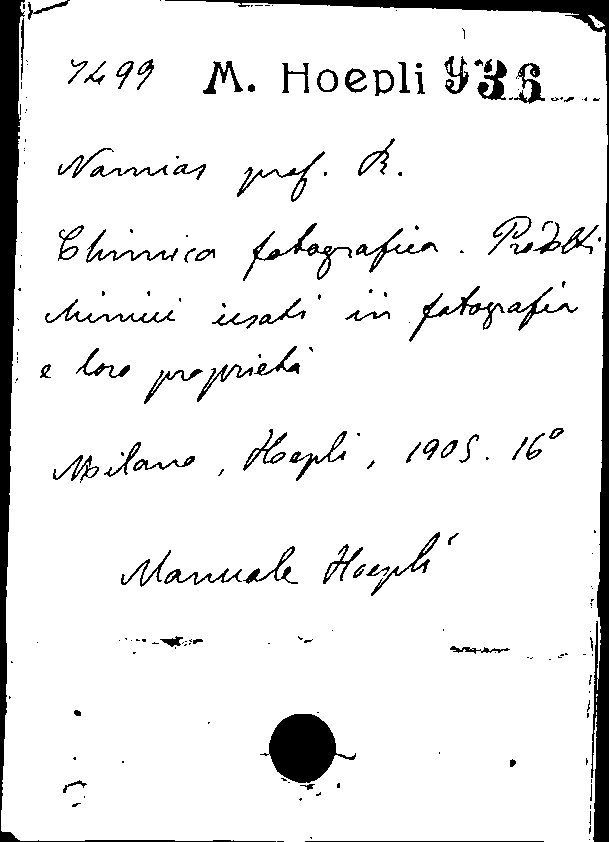 7499 M. Hoepli 936
Namias prof. R.
Chimica fotografica. Prodotti
chimici usati in fotografia
e loro proprietà
Milano, Hoepli, 1905. 16°
Manuale Hoepli